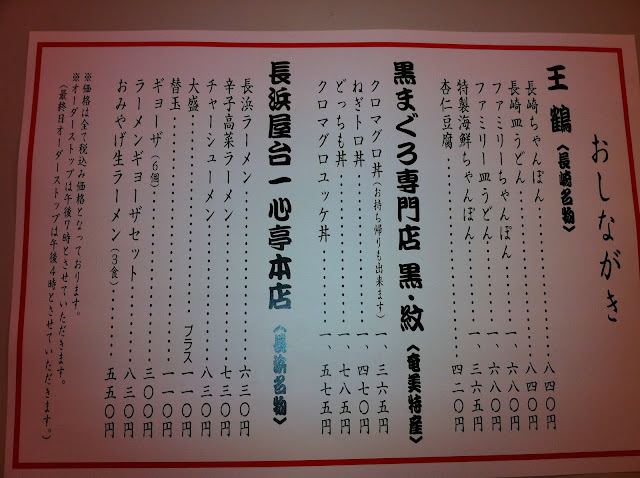 おしながき
王 鶴〈長崎名物〉
長崎ちゃんぽん……………八四〇円
長崎皿うどん……………八四〇円
ファミリーちゃんぽん……………一、六八〇円
ファミリー皿うどん……………一、六八〇円
特製海鮮ちゃんぽん……………一、三六五円
杏仁豆腐……………四二〇円
黒まぐろ専門店 黒・紋〈奄美特産〉
クロマグロ丼(お持ち帰りも出来ます)一、三六五円
ねぎトロ丼……………一、四七〇円
どっちも丼……………一、七八五円
クロマグロユッケ丼……………一、五七五円
長浜屋台一心亭本店〈長浜名物〉
長浜ラーメン……………六三〇円
辛子高菜ラーメン……………七三〇円
チャーシューメン……………八三〇円
大盛……………プラス一一〇円
替玉……………一一〇円
ギョーザ(6個)……………三〇〇円
ラーメンギョーザセット……………八三〇円
おみやげ生ラーメン(3食)……………五五〇円
※価格は全て税込み価格となっております。
※オーダーストップは午後7時とさせていただきます。
(最終日オーダーストップは午後4時とさせていただきます。)